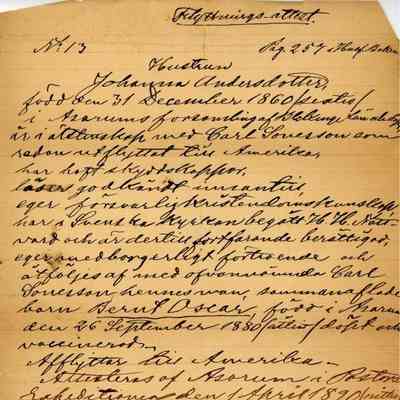 Flyttnings-attest.
No 13 Pag. 257
Hustrun
Johanna Andersdotter,
född den 31 December 1860 /sextio/
i Asarums församling af Blekinge län
är i äktenskap med Carl Sonesson som
redan utflyttat till Amerika,
har haft skyddskoppor,
läser godkändt innantill,
eger försvarlig kristendomskunskap
har i Svenska Kyrkan begått H. H. Natt-
vard och är dertill fortfarande berättigad,
eger medborgerligt förtroende och
åtföljes af med ofvannämnda Carl
Sonesson hennes man, sammanaflade
barn Bernt Oscar, född i Asarum
den 26 September 1880 /åttio/ döpt och
vaccinerad.
Afflyttar till Amerika.
Attesteras af Asarum i Pastors
Expeditionen den 1 April 1890